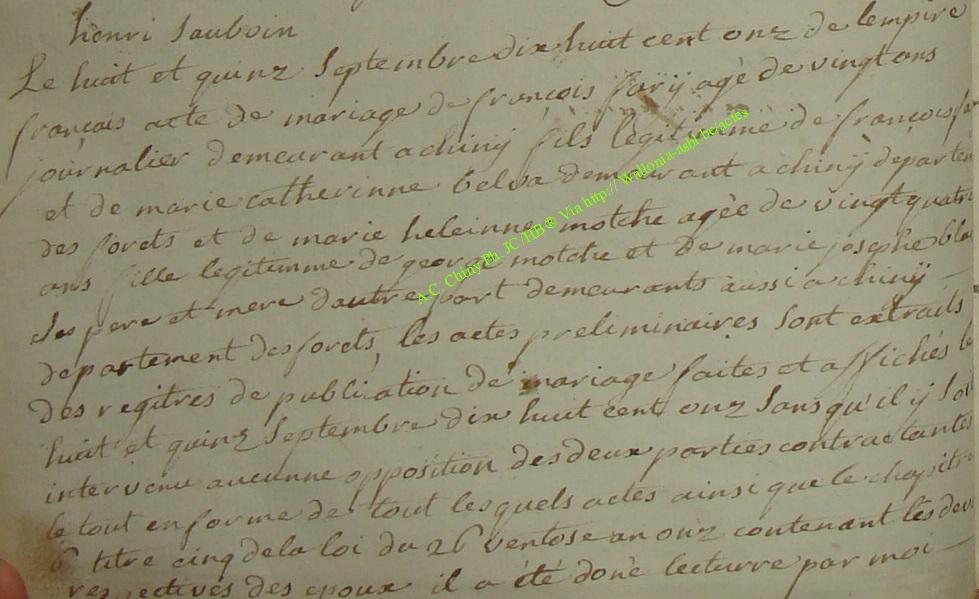 henri Sauboin
Le huit et quinz Septembre dix huit cent onz de lempire
francais acte de mariage de françois farÿ agè de vingt ans
journalier demeurant a chinÿ fils legitimme de françois
et de marie catherinne belva demeurant a chinÿ departem
des forets et de marie heleinne motche agèe de vingt quatre
ans fille legitimme de georg motche et de marie josephe
Ses pere et mere dautre part demeurants aussi a chinÿ
departement des forets, les actes preliminaires Sont extraits
des regitres de publication de mariage faites et affichés le
huit et quinz Septembre dix huit cent onz Sans qu'il ÿ Soi
intervenu aucunne opposition des deux parties contractantes
le tout en forme de tout les quels actes ainsi que le chapitre
6 titre cinq de la loi du 26 ventose an onz contenant les
respectives des epoux il a été donè lecturre par moi
A.C. Chiny Ph. JC /HB® Via http:// Wallonia-asbl.be/actes